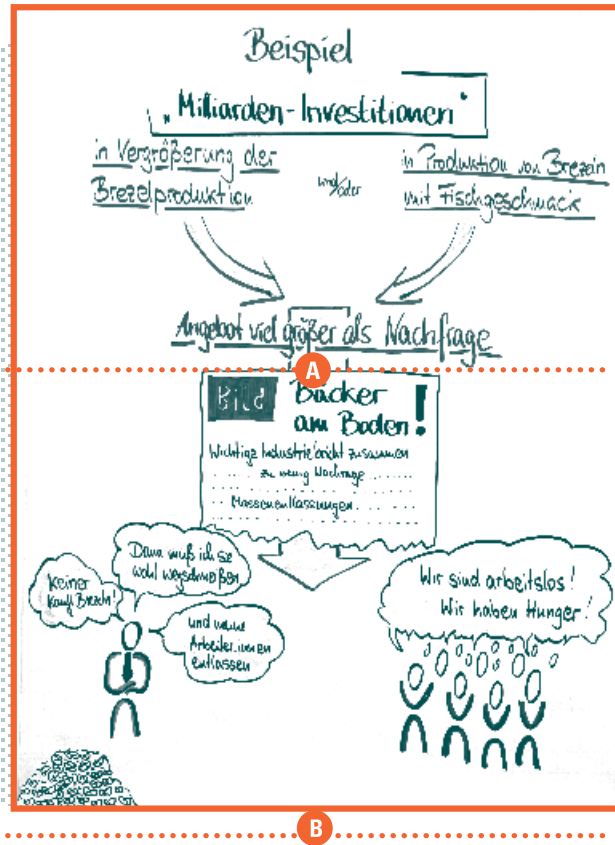 Beispiel
„Milliarden-Investitionen“
in Vergrößerung der
Brezelproduktion
und/oder
in Produktion von Brezeln
mit Fischgeschmack
Angebot viel größer als Nachfrage
A
Bild
Bäcker
am Boden!
Wichtige Industrie bricht zusammen
zu wenig Nachfrage
Massenentlassungen
Keiner
kauft Brezeln!
Dann muß ich sie
wohl wegschmeißen
und meine
Arbeiter.innen
entlassen
Wir sind arbeitslos!
Wir haben Hunger!
B